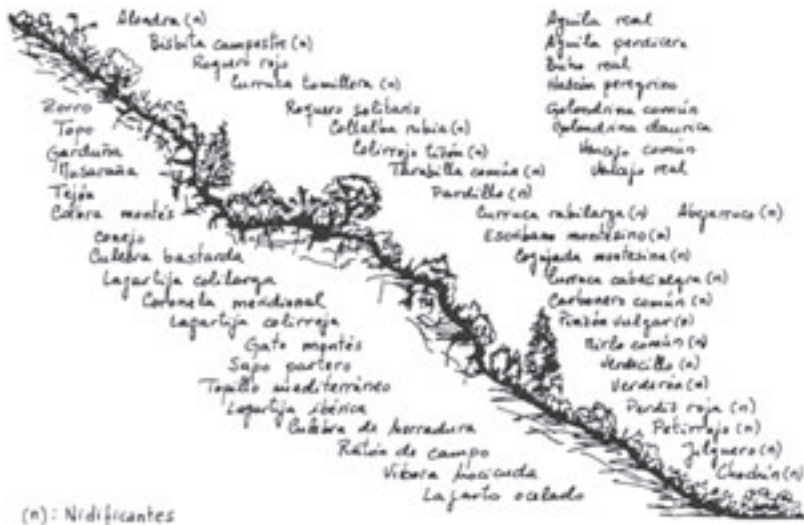 Alondra (n)
Bisbita campestre (n)
Roquero rojo
Curruca tomillera (n)
Roquero solitario
Collalba rubia (n)
Colirrojo tizón (n)
Tarabilla común (n)
Pardillo (n)
Curruca rabilarga (n)
Escribano montesino (n)
Cogujada montesina (n)
Curruca cabecinegra (n)
Carbonero común (n)
Pinzón vulgar (n)
Mirlo común (n)
Verdecillo (n)
Verderón (n)
Perdiz roja (n)
Petirrojo (n)
Jilguero (n)
Chochín (n)
Aguila real
Aguila perdicera
Búho real
Halcón peregrino
Golondrina común
Golondrina daurica
Vencejo común
Vencejo real
Abejarruco (n)
Zorro
Topo
Garduña
Musaraña
Tejón
Cabra montés
Conejo
Culebra bastarda
Lagartija colilarga
Coronela meridional
Lagartija colirroja
Gato montés
Sapo partero
Topillo mediterráneo
Lagartija ibérica
Culebra de herradura
Ratón de campo
Víbora hocicuda
Lagarto ocelado
(n): Nidificantes